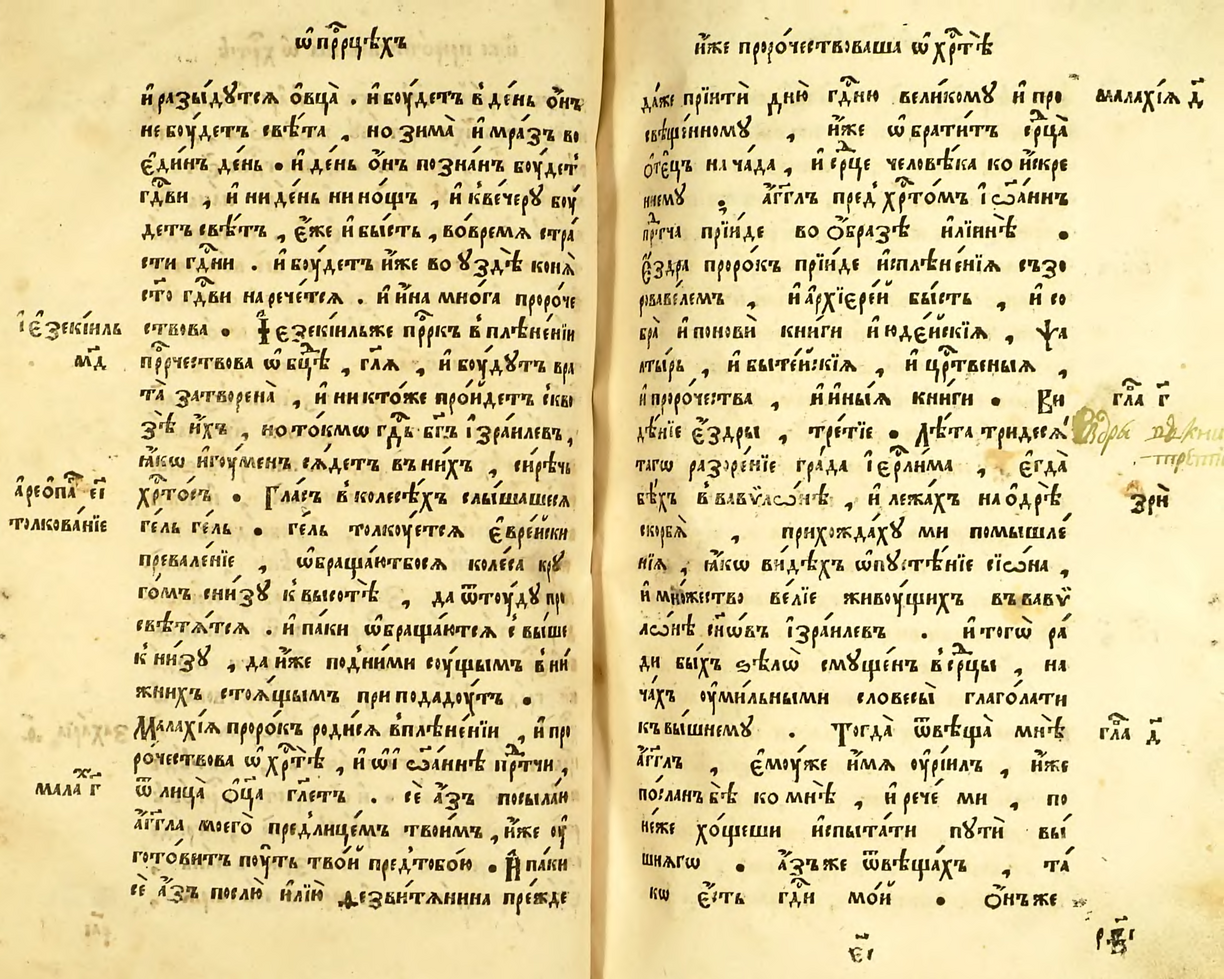 ѡ҆ прⷪ҇рцѣхъ
и҆ разы́дутсѧ ѻ҆вца̀ . и҆ бꙋ́детъ в̾ де́нь ѻ҆́нъ
не бꙋ́детъ свѣ́та , но зима̀ и҆ мра́зъ во
є҆ди́нъ де́нь . и҆ де́нь ѻ҆́нъ позна́нъ бꙋ́детъ
гдⷭ҇ви , и҆ ни де́нь ни но́щъ , и҆ к̾ ве́черꙋ бꙋ́
детъ свѣ́тъ , є҆́же и҆ бы́сть , во вре́мѧ стра́
сти гдⷭ҇ни . и҆ бꙋ́детъ и҆́же во ᲂу҆здѣ̀ конѧ̀
ст҃о гдⷭ҇ви нарече́тсѧ . и҆ и҆́на мно́га проро́че
І҆е҆зекі́иль
ствова . І҆е҆зекі́ильже прⷪ҇ркъ в̾ плѣне́нїи
м҃д
прⷪ҇рчествова ѡ҆ бцⷣѣ , гл҃ѧ , и҆ бꙋ́дꙋтъ вра
та̀ затворена̀ , и҆ никто́же про́йдетъ сквѡ
зѣ̀ и҆́хъ , но то́кмѡ гдⷭ҇ь бг҃ъ і҆зра́илевъ ,
ꙗ҆́кѡ и҆гꙋ́менъ сѧ́детъ въ ни́хъ , си́рѣчь
а҆реопа́ є҃і
хрⷭ҇то́съ . Гла́съ в̾ колесѣ́хъ слы́шашесѧ
толкова́нїе
ге́ль ге́ль . ге́ль толкꙋ́етсѧ є҆вре́йски
превале́нїе , ѡ҆браща́ютбосѧ коле́са крꙋ́
го́мъ сни́зꙋ к̾ высотѣ̀ , да ѿтꙋ́дꙋ про
свѣтѧ́тсѧ . и҆ па́ки ѡ҆браща́ютсѧ с̾ вы́ше
к̾ ни́зꙋ , да и҆́же под̾ ни́ми сꙋ́щымъ в̾ ни́
жнихъ стоѧ́щымъ приподадꙋ́тъ .
Малахі́ѧ проро́къ роди́сѧ в̾ плѣне́нїи , и҆ про
ро́чествова ѡ҆ хрⷭ҇тѣ̀ , и҆ ѡ҆ і҆ѡа́ннѣ прⷣтчи ,
мала́х г҃
ѿ лица̀ ѻ҆ц҃а̀ гл҃етъ . сѐ а҆́зъ посыла́ю
а҆́гг҃ла моего̀ пред̾ лице́мъ твои́мъ , и҆́же ᲂу҆
гото́витъ пꙋ́ть тво́й пред̾ тобо́ю . И҆ па́ки
сѐ а҆́зъ послю̀ и҆лїю̀ ѳезвитѧ́нина пре́жде
и҆́же проро́чествоваша ѡ҆ хрⷭ҇тѣ̀
да́же прїитѝ дню̀ гдⷭ҇ню вели́комꙋ и҆ про
малахі́ѧ д҃
свѣще́нномꙋ , и҆́же ѡ҆брати́тъ срⷣца̀
ѻ҆те́цъ на ча́да , и҆ срⷣце человѣ́ка ко и҆́скре
ннемꙋ . а҆́гг҃лъ пред̾ хрⷭ҇то́мъ і҆ѡа́ннъ
прⷣтча прїи́де во ѻ҆́бразѣ и҆лїи́нѣ .
Є҆́здра проро́къ прїи́де и҆сплѣне́нїѧ съ зо
рова́велемъ , и҆ а҆рхїере́й бы́сть , и҆ со
бра̀ и҆ поновѝ кни́ги и҆юде́йскїѧ , ѱа
лты́рь , и҆ быте́йскїѧ , и҆ црⷭ҇твеныѧ ,
и҆ проро́чества , и҆ и҆ны́ѧ кни́ги . Ви
гла̀ г҃
дѣ́нїе є҆́здры , тре́тїе . Лѣ́та тридесѧ́
тагѡ разоре́нїе гра́да і҆ерⷭ҇ли́ма , є҆гда̀
бѣ́хъ в̾ вавѷлѡ́нѣ , и҆ лежа́хъ на ѻ҆дрѣ̀
зрѝ
скорбѧ̀ , прихожда́хꙋ ми помышле́
нїѧ , ꙗ҆́кѡ ви́дѣхъ ѡ҆пꙋстѣ́нїе сїѡ́на ,
и҆ мно́жество ве́лїе живꙋ́щихъ въ вавѷ
лѡ́нѣ сн҃ѡ́въ і҆зра́илевъ . и҆ тогѡ̀ ра́
ди бы́хъ ѕѣлѡ̀ смꙋще́нъ в̾ срⷣцы , на
ча́хъ ᲂу҆ми́льными словесы̀ глаго́лати
къ вы́шнемꙋ . Тогда̀ ѿвѣща̀ мнѣ̀
гла̀ д҃
а҆́гг҃лъ , є҆мꙋ́же и҆́мѧ ᲂу҆рїи́лъ , и҆́же
по́сланъ бѣ̀ ко мнѣ̀ , и҆ рече́ ми , по
не́же хо́щеши и҆спыта́ти пꙋтѝ вы́
шнѧгѡ . а҆́зъ же ѿвѣща́хъ , та́
кѡ є҆́сть гдⷭ҇и мо́й . ѻ҆́нъ же
є҃і